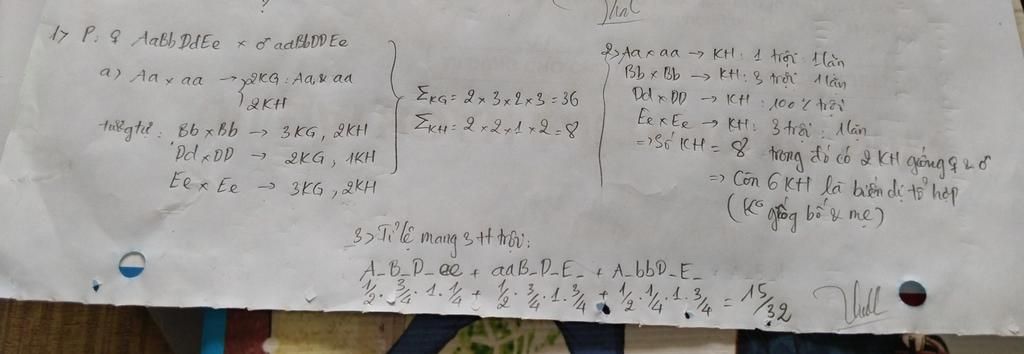 1, P: ♀ AaBbDdEe × ♂ aaBbDDEe
a) Aa × aa → 2KG: Aa & aa
2KH
tương tự: Bb × Bb → 3KG, 2KH
Dd × DD → 2KG, 1KH
Ee × Ee → 3KG, 2KH
ΣKG = 2 × 3 × 2 × 3 = 36
ΣKH = 2 × 2 × 1 × 2 = 8
2, Aa × aa → KH: 1 trội: 1 lặn
Bb × Bb → KH: 3 trội: 1 lặn
Dd × DD → KH: 100% trội
Ee × Ee → KH: 3 trội: 1 lặn
⇒ Số KH = 8 trong đó có 2 KH giống ♀ & ♂
⇒ Còn 6 KH là biến dị tổ hợp
(K⁰ giống bố & mẹ)
3, Tỉ lệ mang 3 tt trội:
A_B_D_ee + aaB_D_E_ + A_bbD_E_
1/2 . 3/4 . 1 . 1/4 + 1/2 . 3/4 . 1 . 3/4 + 1/2 . 1/4 . 1 . 3/4 = 15/32